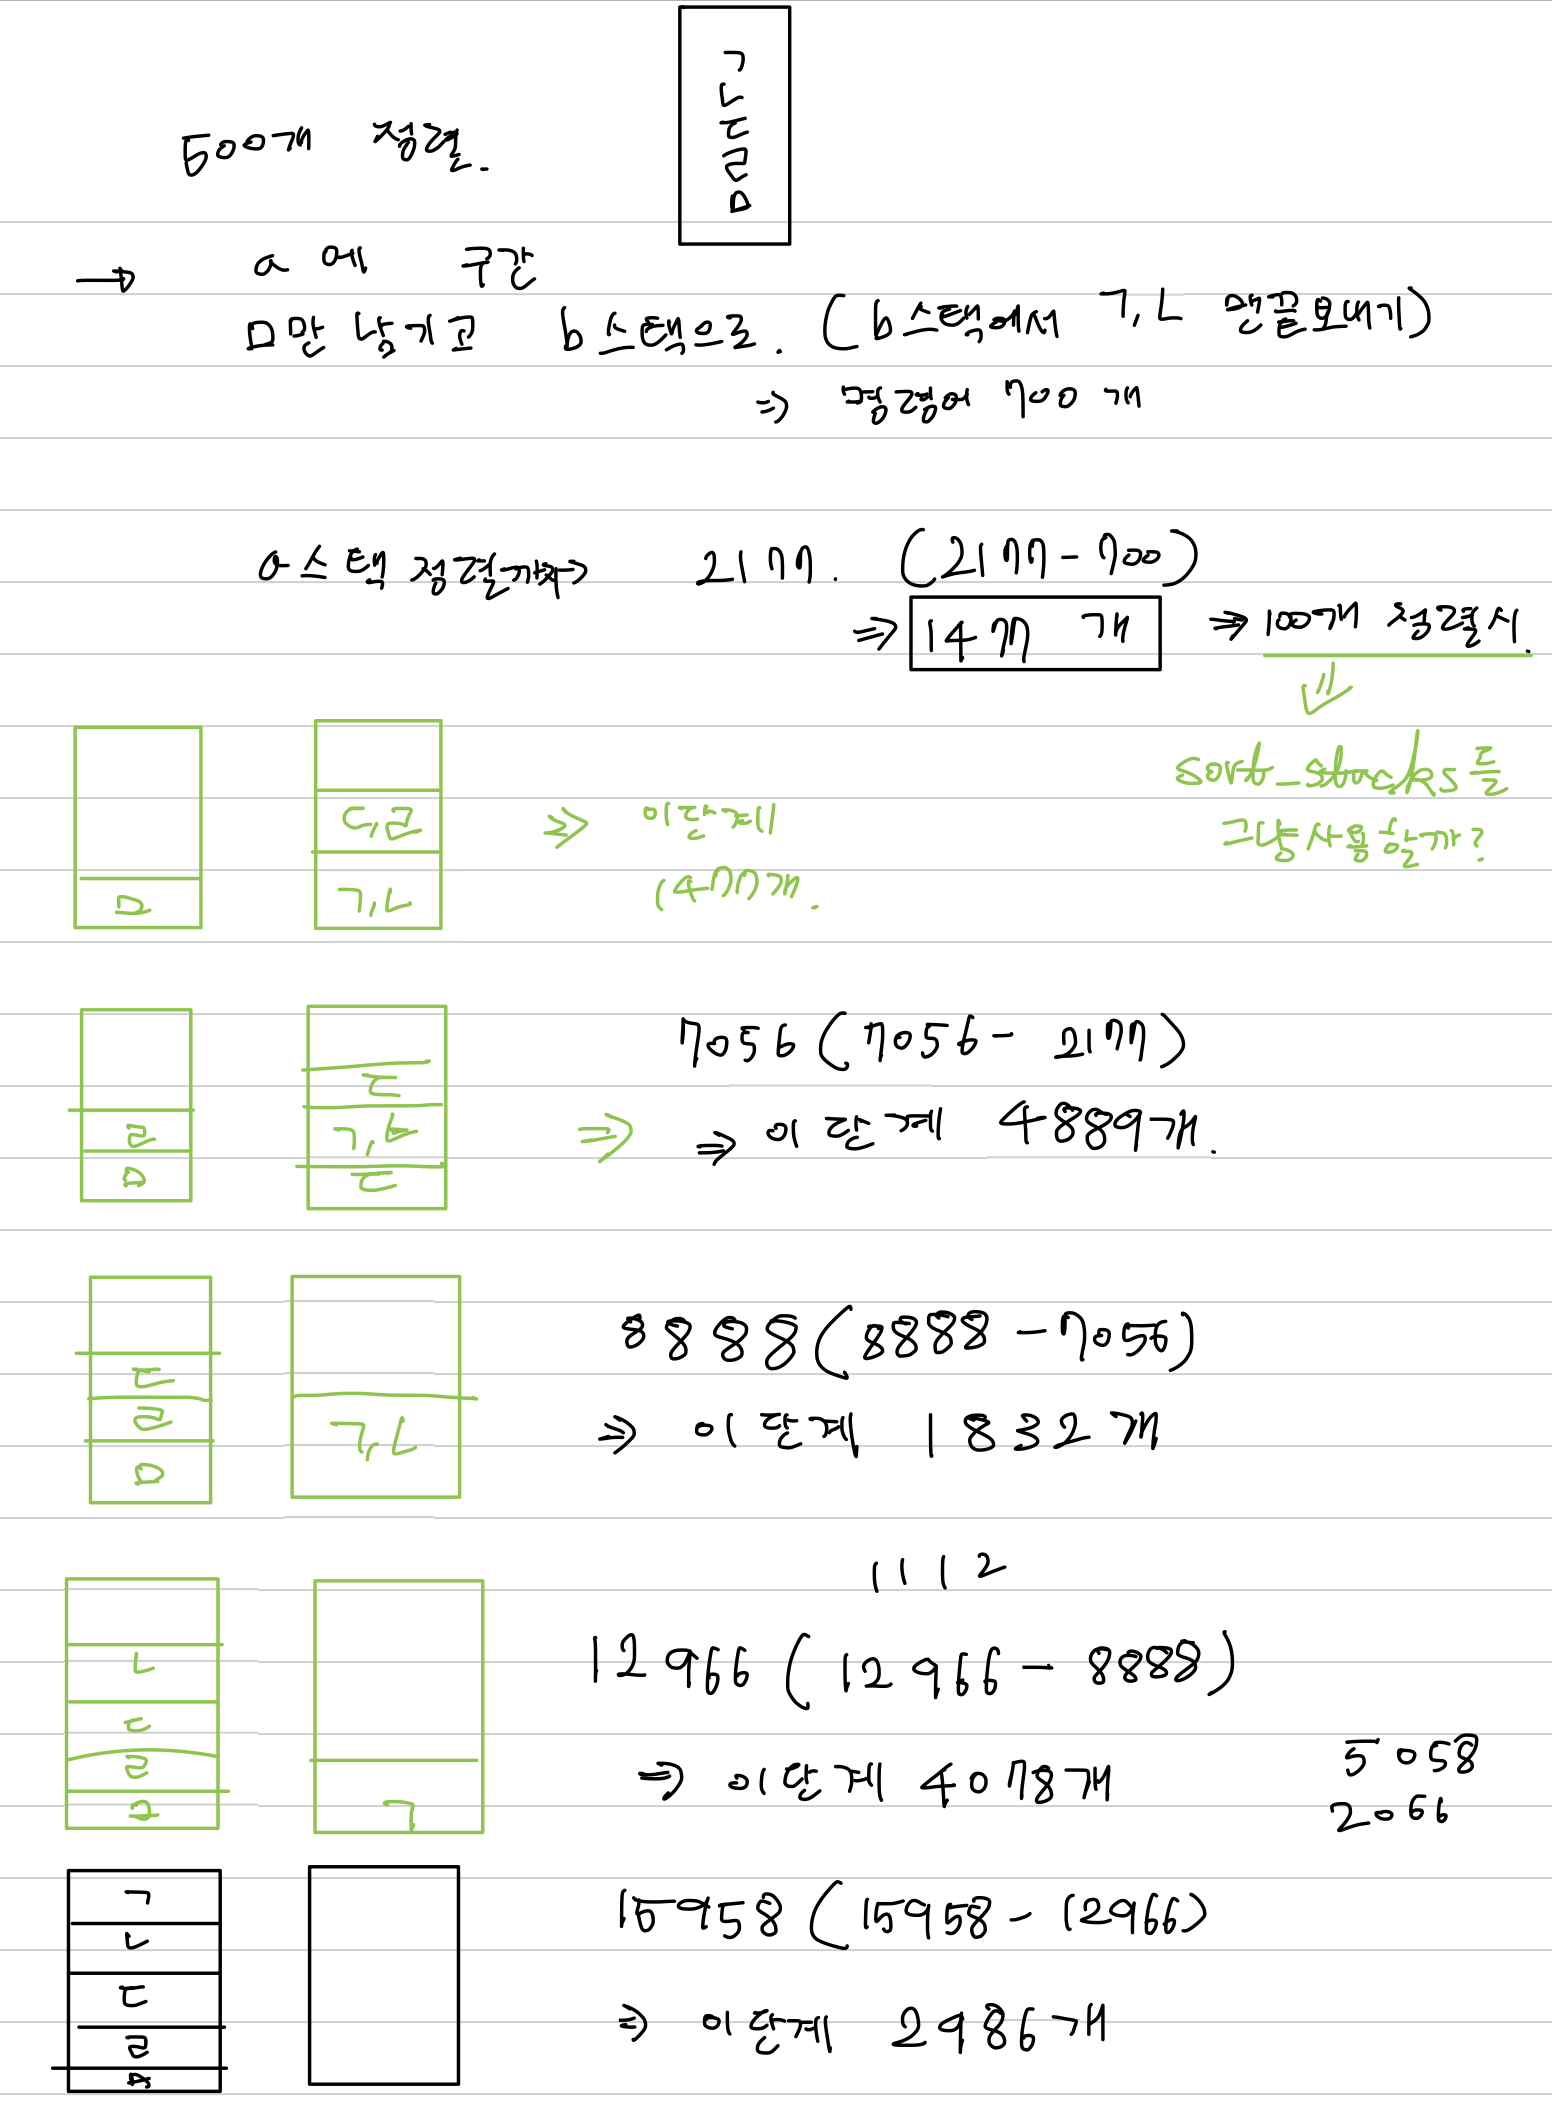 ㄱ
ㄴ
ㄷ
ㄹ
ㅁ
500개 정렬.
→ a 에 구간
ㅁ만 남기고 b스택으로. (b스택에서 ㄱ,ㄴ 맨끝보내기)
⇒ 명령어 700개
a스택 정렬까지→ 2177. (2177-700)
⇒ 1477 개 ⇒ 100개 정렬시.
sort_stacks를
그냥사용할까?
ㄷ,ㄹ
ㅁ ㄱ,ㄴ
⇒ 이단계
1477개.
7056 (7056- 2177)
ㄷ
ㄹ ㄱ,ㄴ
ㅁ ㄷ
⇒ ⇒ 이 단계 4889개.
8888 (8888-7056)
ㄷ
ㄹ ㄱ,ㄴ
ㅁ
⇒ 이 단계 1832개
1112
12966 (12966- 8888)
ㄴ
ㄷ
ㄹ
ㄱ
⇒ 이단계 4078개
5058
2066
15958 (15958- 12966)
ㄱ
ㄴ
ㄷ
ㄹ
ㅁ
⇒ 이단계 2986개